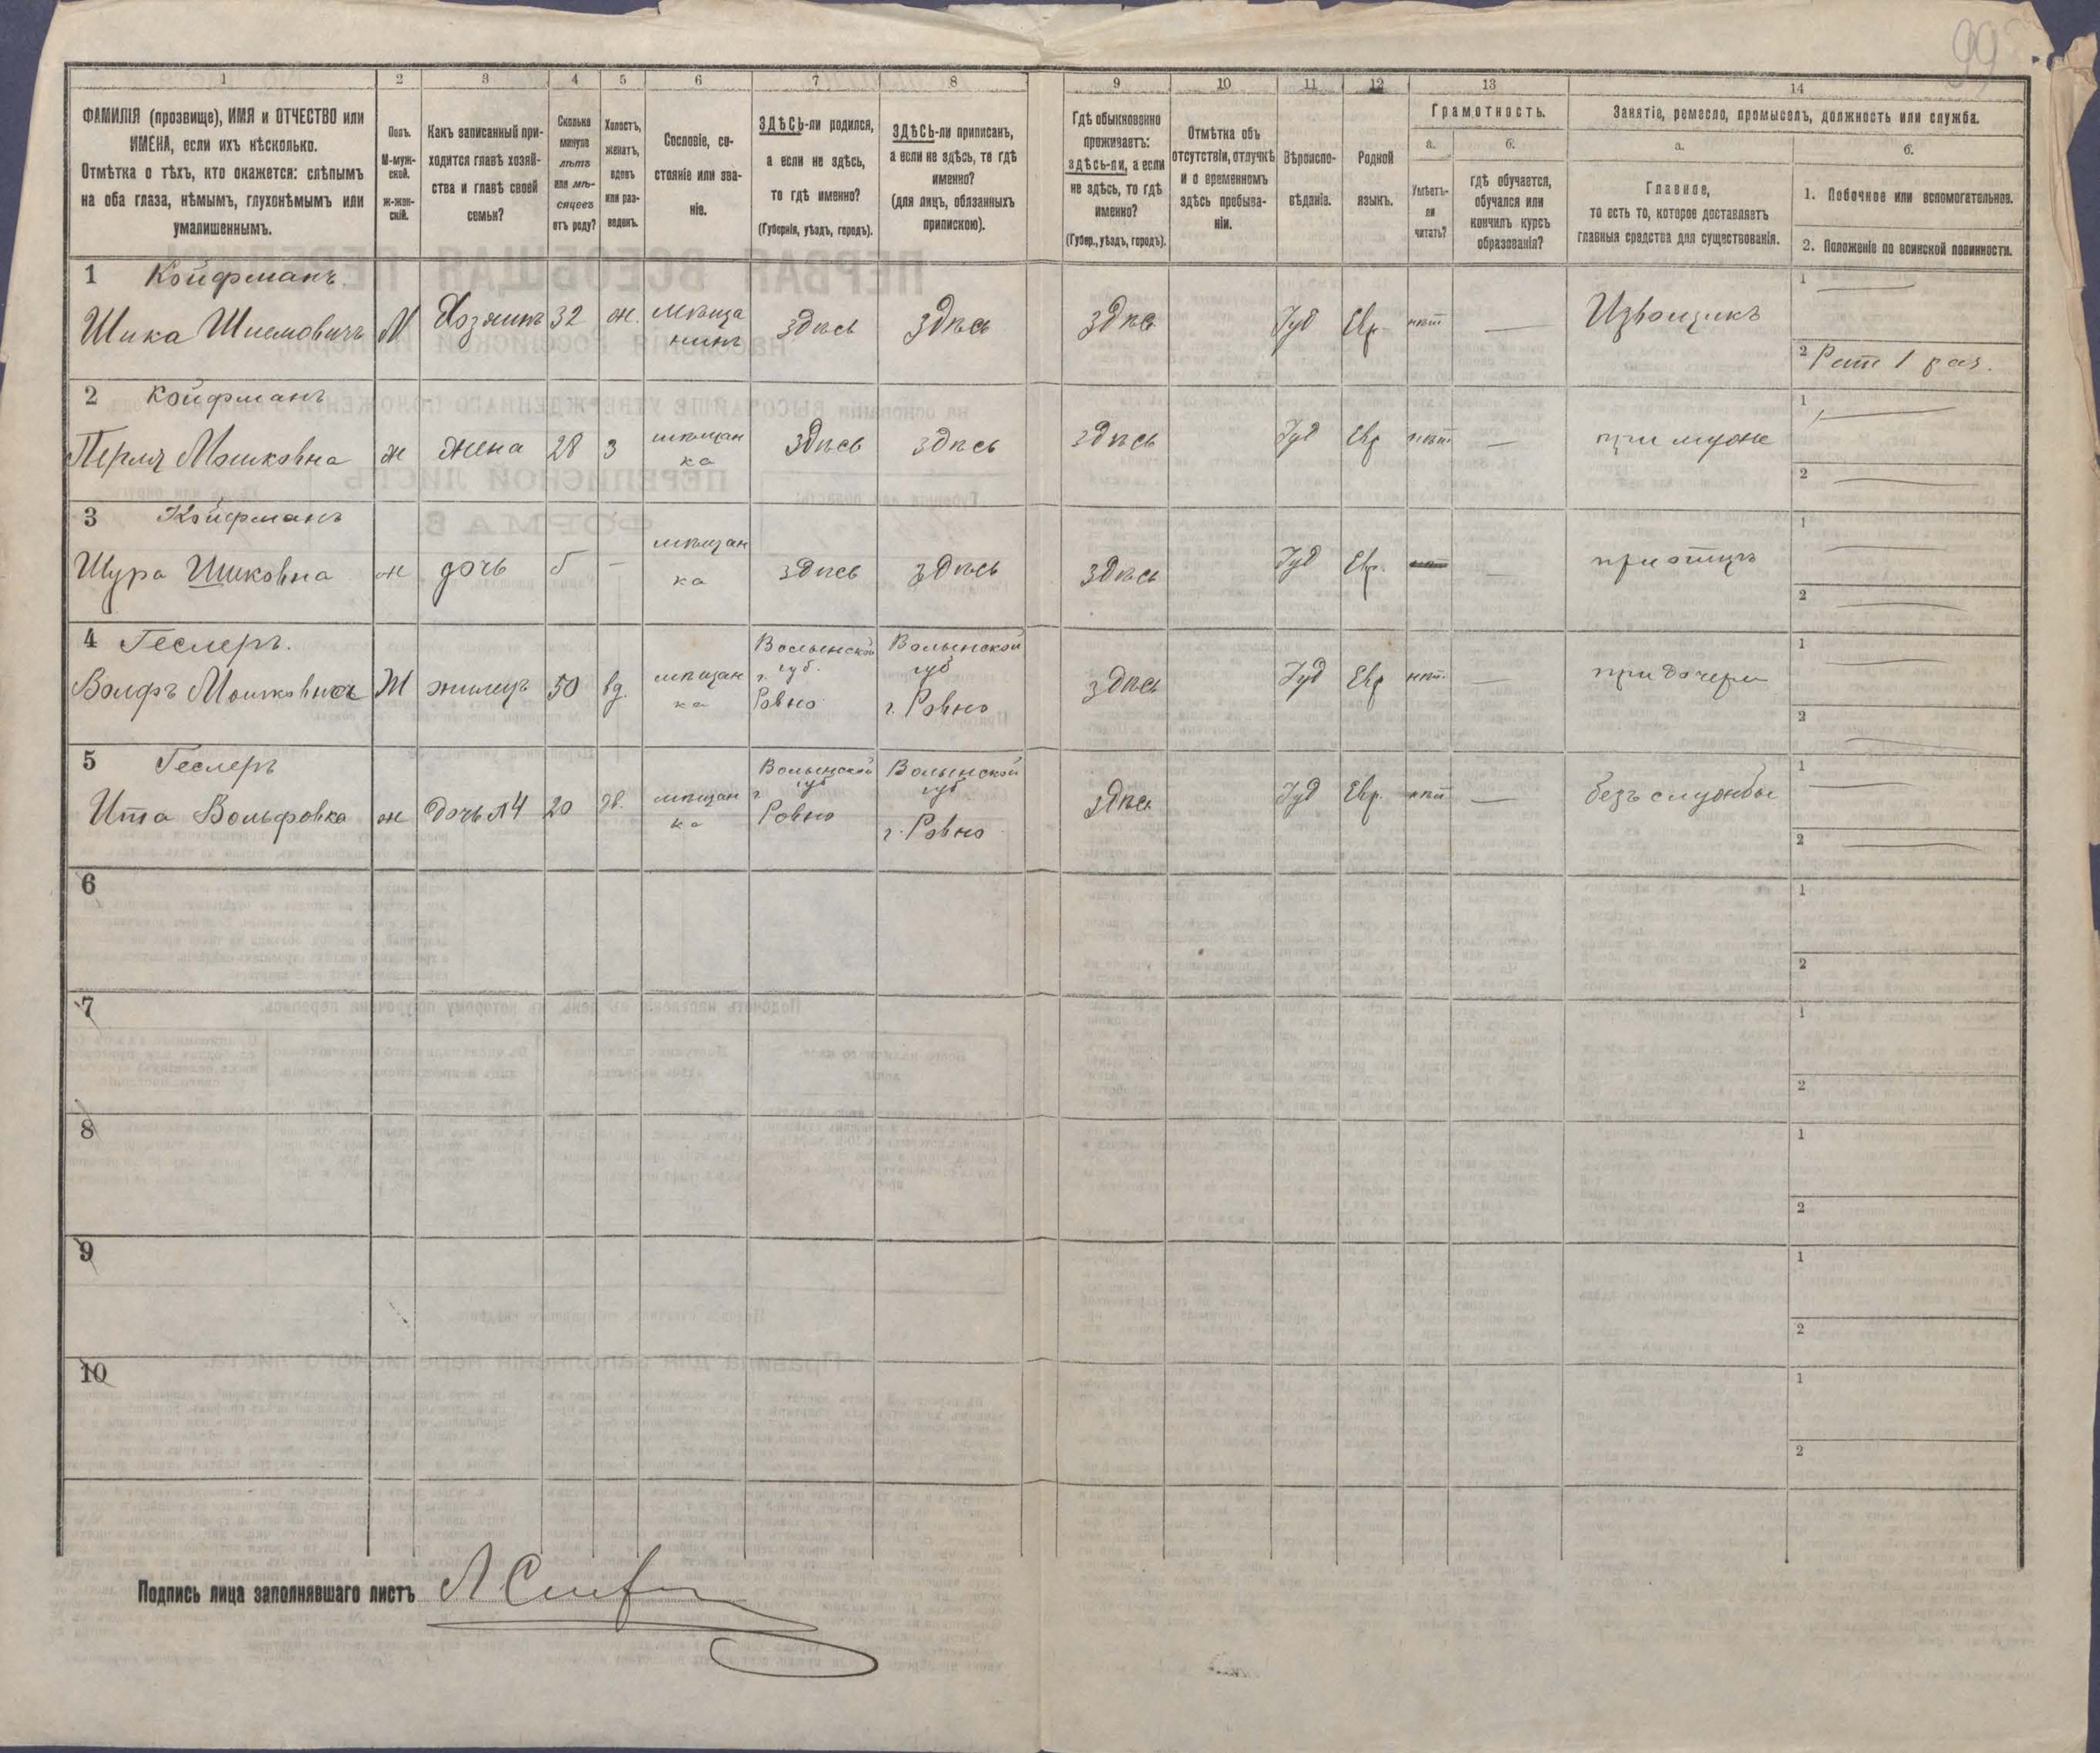 99
1
2
3
4
5
6
7
8
9
10
11
12
13
14
ФАМИЛІЯ (прозвище), ИМЯ и ОТЧЕСТВО или
ИМЕНА, если ихъ нѣсколько.
Отмѣтка о тѣхъ, кто окажется: слѣпымъ
на оба глаза, нѣмымъ, глухонѣмымъ или
умалишеннымъ.
Полъ.
М-муж-
ской.
ж-жен-
скій.
Какъ записанный при-
ходится главѣ хозяй-
ства и главѣ своей
семьи?
Сколько
минуло
лѣтъ
или мѣ-
сяцевъ
отъ роду?
Холостъ,
женатъ,
вдовъ
или раз-
веденъ.
Сословіе, со-
стояніе или зва-
ніе.
ЗДѢСЬ-ли родился,
а если не здѣсь,
то гдѣ именно?
(Губернія, уѣздъ, городъ).
ЗДѢСЬ-ли приписанъ,
а если не здѣсь, то гдѣ
именно?
(для лицъ, обязанныхъ
припискою).
Гдѣ обыкновенно
проживаетъ:
здѣсь-ли, а если
не здѣсь, то гдѣ
именно?
(Губер., уѣздъ, городъ).
Отмѣтка объ
отсутствіи, отлучкѣ
и о временномъ
здѣсь пребыва-
ніи.
Вѣроиспо-
вѣданіе.
Родной
языкъ.
Грамотность.
а.
Умѣетъ-
ли
читать?
б.
гдѣ обучается,
обучался или
кончилъ курсъ
образованія?
Занятіе, ремесло, промыселъ, должность или служба.
а.
Главное,
то есть то, которое доставляетъ
главныя средства для существованія.
б.
1. Побочное или вспомогательное.
2. Положеніе по воинской повинности.
1 Койфманъ
Шика Шиемовичъ М Хозяинъ 32 ж. мѣща здѣсь здѣсь здѣсь Іуд Евр. нѣт — Извощикъ 1 —
нинъ
2 Рат 1 раз.
2 Койфманъ
Перля Мошковна ж жена 28 З мѣщан здѣсь здѣсь здѣсь Іуд Евр нѣт — при муже 1 —
ка
2 —
3 Койфманъ
Шура Шиковна ж дочь 5 — мѣщан здѣсь здѣсь здѣсь Іуд Евр. — при отцѣ 1 —
ка
2 —
4 Геслеръ. Волынской Волынской
губ. губ
Вольфъ Мошковна Ж жилецъ 50 вд. мѣщан г. Ровно г. Ровно здѣсь Іуд Евр нѣт. — при дочери 1 —
ка
2 —
5 Геслеръ Волынской Волынской
губ губ
Ита Вольфовка ж дочь л 4 20 дв. мѣщан г. Ровно г. Ровно здѣсь Іуд Евр. нѣт — безъ службы 1 —
ка
2 —
6
1
2
7
1
2
8
1
2
9
1
2
10
1
2
Подпись лица заполнявшаго листъ